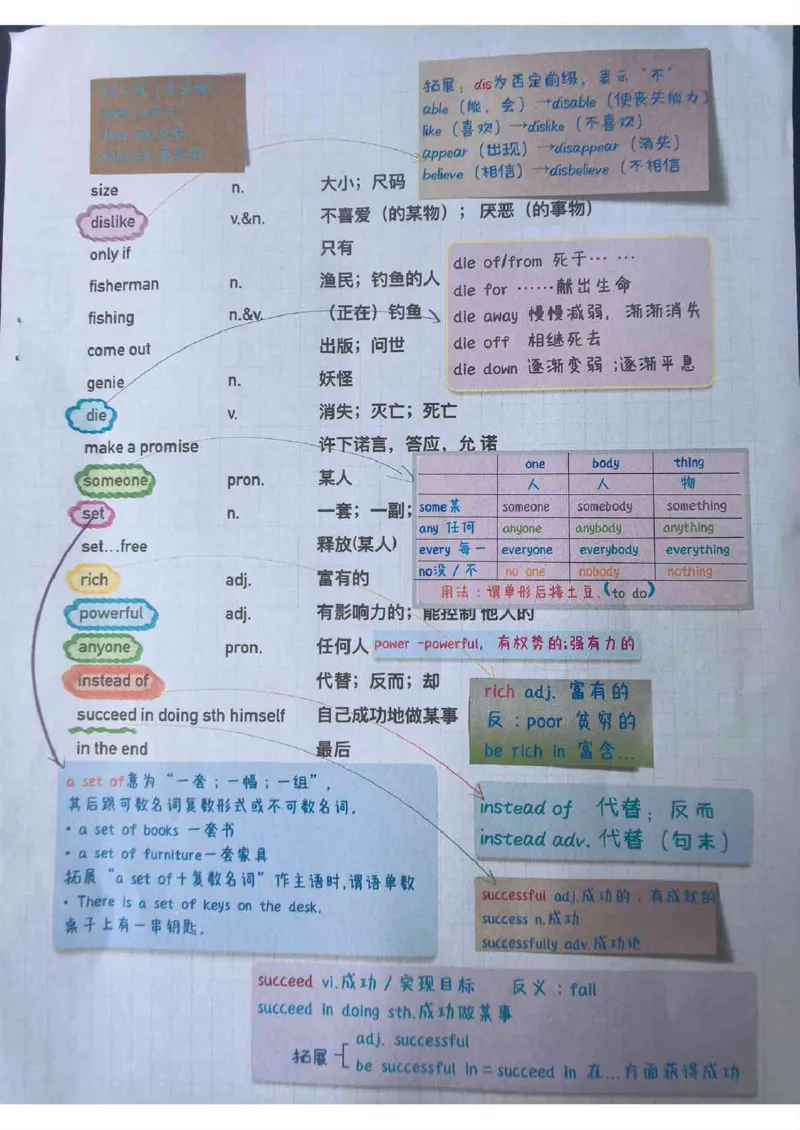 拓展：dis为否定前缀，表示“不”
able（能，会）→disable（使丧失能力）
like（喜欢）→dislike（不喜欢）
appear（出现）→disappear（消失）
believe（相信）→disbelieve（不相信
size n. 大小；尺码
dislike v.&n. 不喜爱（的某物）；厌恶（的事物）
only if 只有
fisherman n. 渔民；钓鱼的人
fishing n.&v. （正在）钓鱼
come out 出版；问世
genie n. 妖怪
die v. 消失；灭亡；死亡
make a promise 许下诺言，答应，允 诺
someone pron. 某人
set n. 一套；一副；
set...free 释放(某人)
rich adj. 富有的
powerful adj. 有影响力的；能控制 他人的
anyone pron. 任何人
instead of 代替；反而；却
succeed in doing sth himself 自己成功地做某事
in the end 最后
die of/from 死于… …
die for ……献出生命
die away 慢慢减弱，渐渐消失
die off 相继死去
die down 逐渐变弱；逐渐平息
one body thing
人 人 物
some某 someone somebody something
any 任何 anyone anybody anything
every 每一 everyone everybody everything
no没/不 no one nobody nothing
用法：谓单形后接土豆.(to do)
power -powerful，有权势的;强有力的
rich adj. 富有的
反：poor 贫穷的
be rich in 富含...
instead of 代替；反而
instead adv. 代替（句末）
successful adj.成功的；有成就的
success n.成功
successfully adv.成功地
a set of意为“一套；一幅；一组”，
其后跟可数名词复数形式或不可数名词.
• a set of books 一套书
• a set of furniture一套家具
拓展“a set of+复数名词”作主语时,谓语单数
• There is a set of keys on the desk.
桌子上有一串钥匙.
succeed vi.成功/实现目标 反义：fail
succeed in doing sth.成功做某事
拓展 adj. successful
be successful in=succeed in 在...方面获得成功